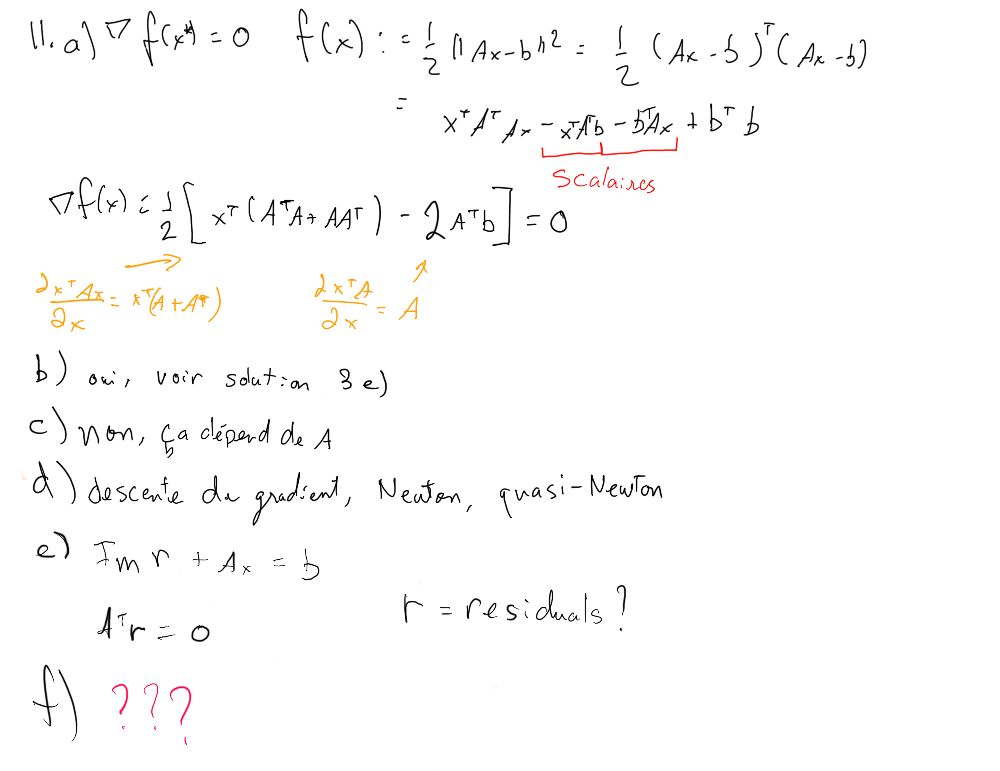 11. a) ∇ f(x*) = 0 f(x) : = 1/2 ||Ax-b||² = 1/2 (Ax - b)ᵀ(Ax - b)
= xᵀAᵀAx - xᵀAᵀb - bᵀAx + bᵀb
Scalaires
∇f(x) = 1/2 [xᵀ(AᵀA + AAᵀ) - 2Aᵀb] = 0
∂xᵀAx/∂x = xᵀ(A + Aᵀ) ∂xᵀA/∂x = A
b) oui, voir solution 3 e)
c) non, ça dépend de A
d) descente du gradient, Newton, quasi-Newton
e) Im r + Ax = b
Aᵀr = 0 r = residuals?
f) ???